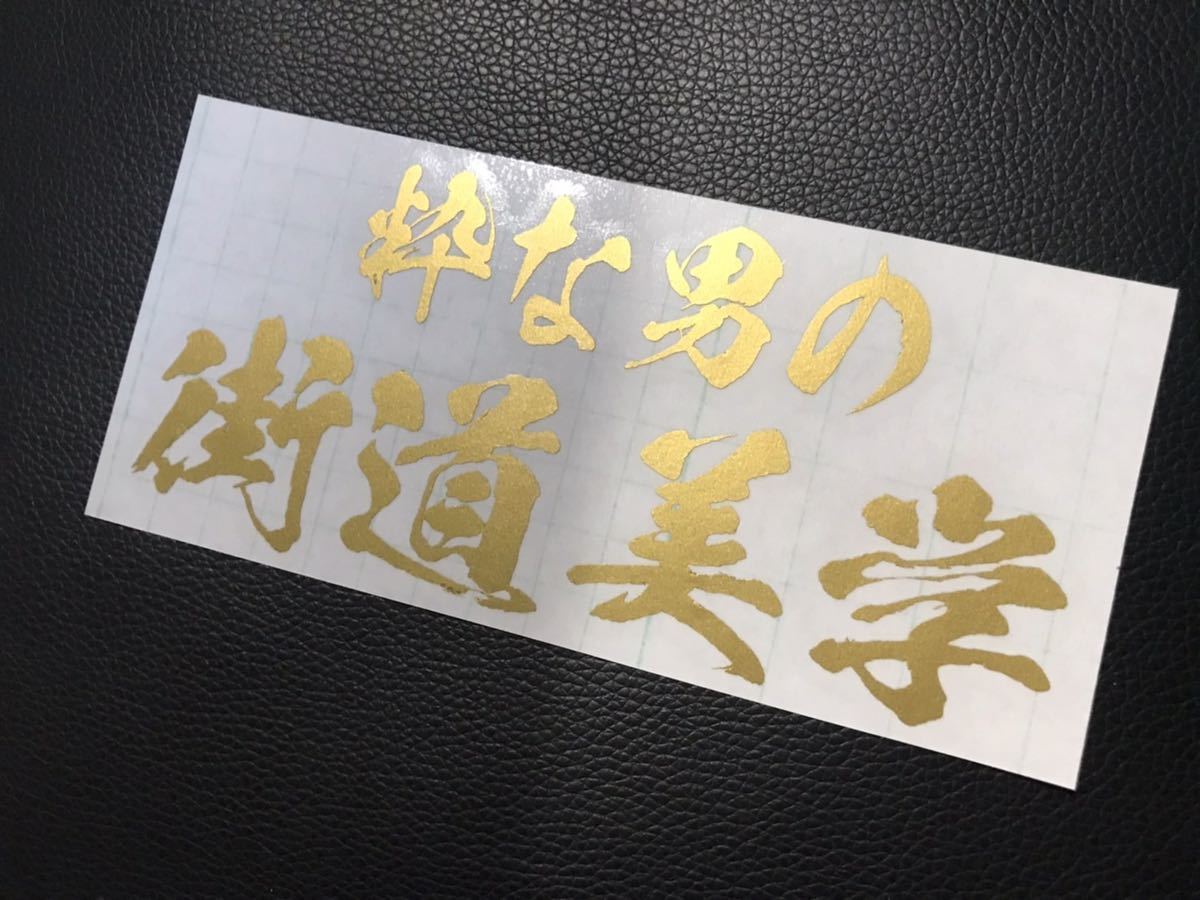 粋な男の
街道美学